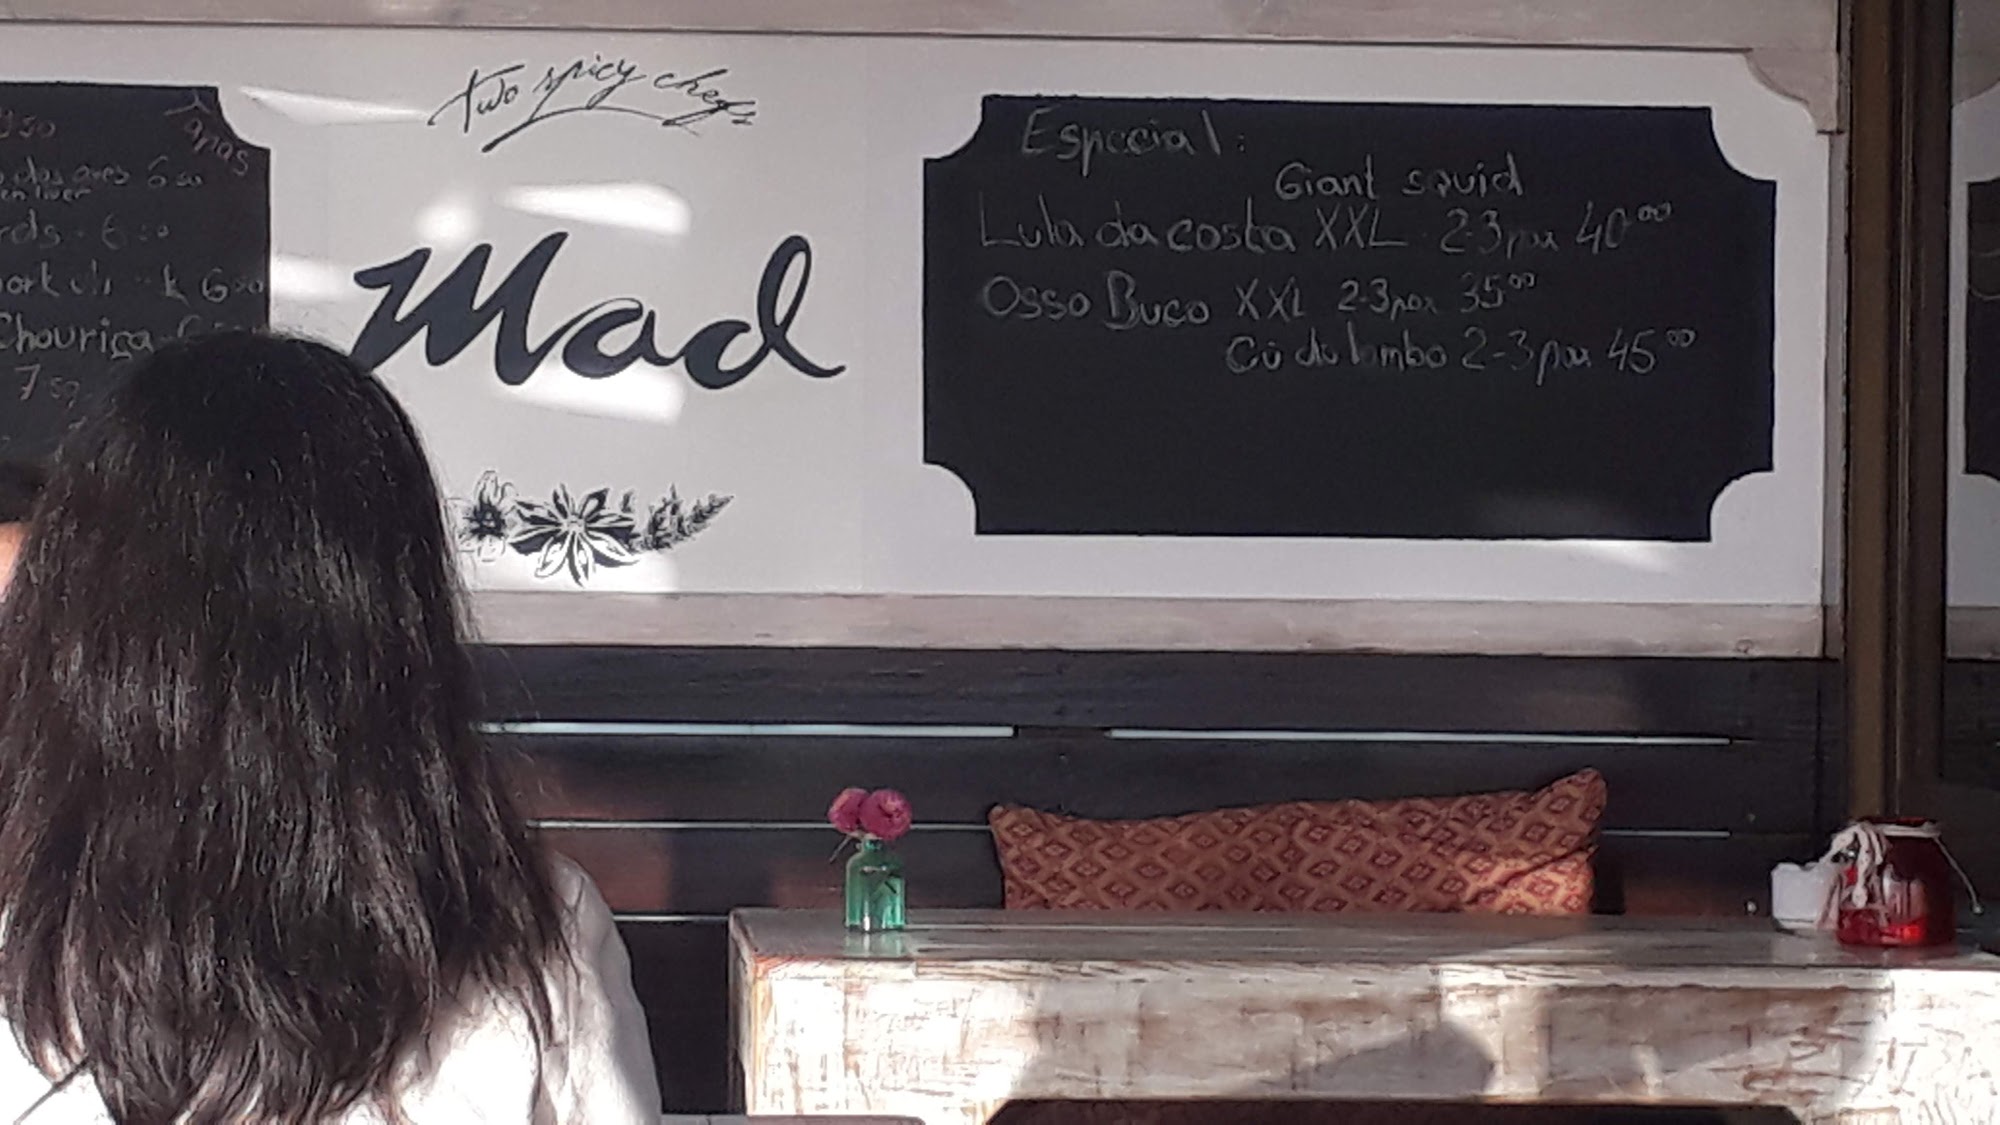 950
das aves 6 50
en liver
rds - 6 50
ork 6 50
Chouriça
7 50
two spicy chefs
Mad
Especial:
Giant squid
Lula da costa XXL 2-3 pax 40⁰⁰
Osso Buco XXL 2-3 pax 35⁰⁰
lombo 2-3 pax 45⁰⁰